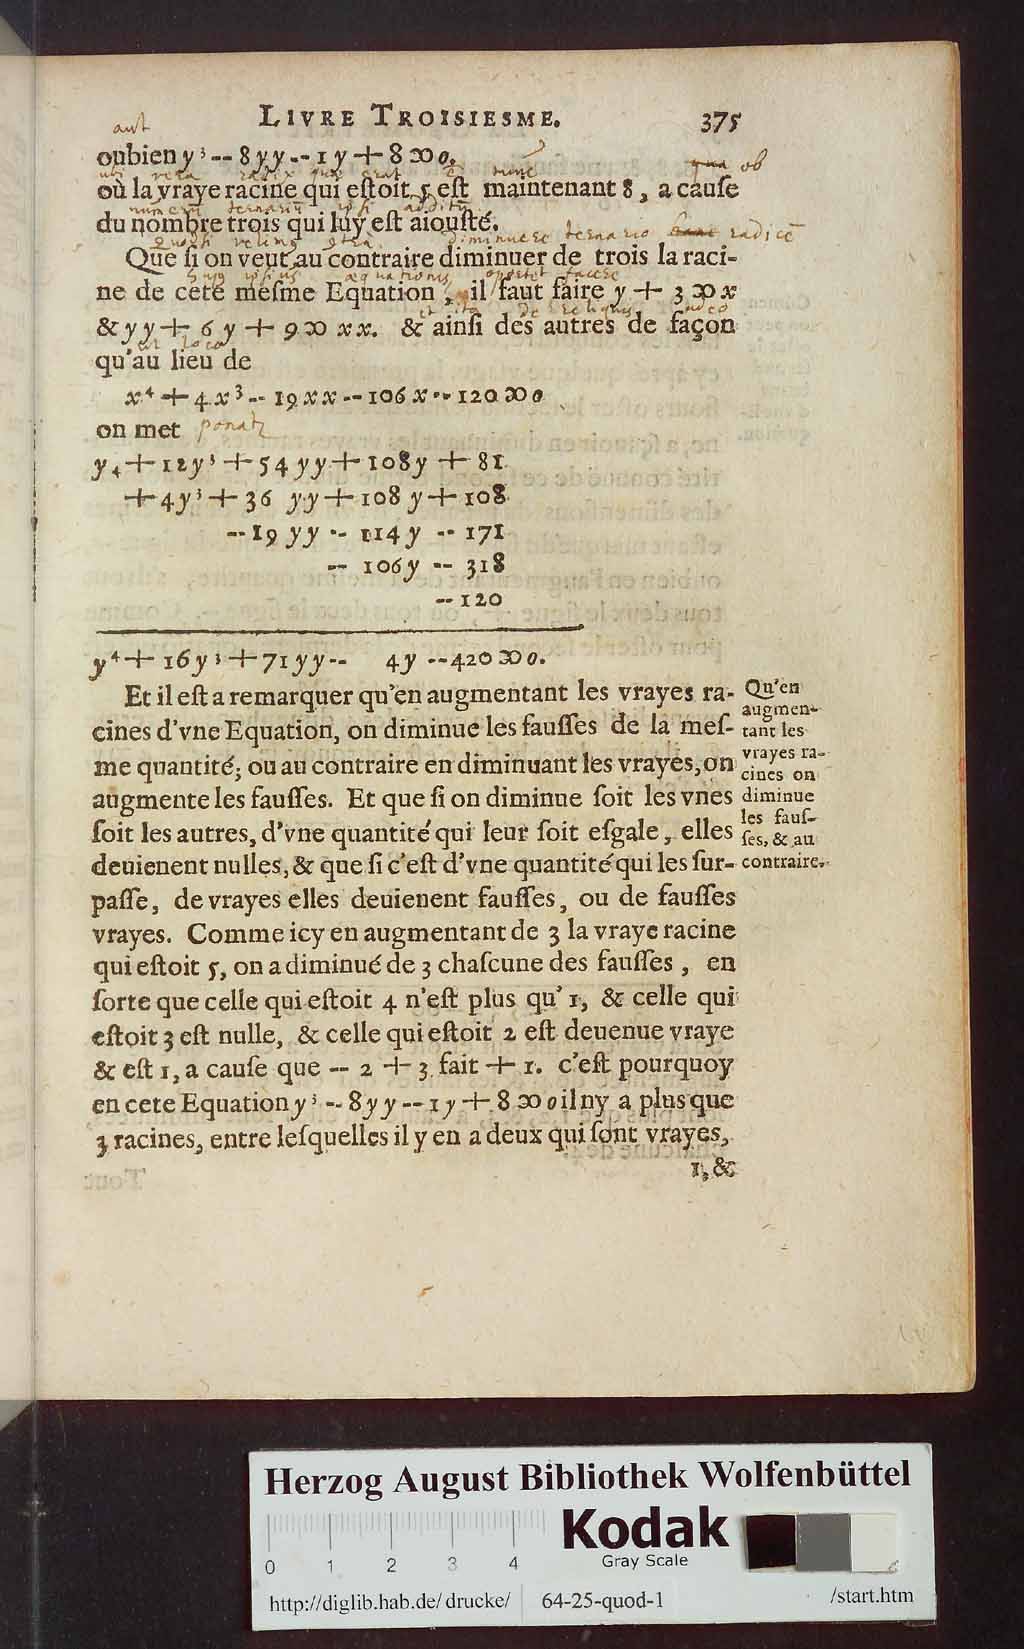 LIVRE TROISIESME. 375
aut
oubien y³ -- 8 yy -- 1 y + 8 ∞ 0.
ubi vera radix quæ erat nunc ob
où la vraye racine qui eſtoit 5 eſt maintenant 8, a cauſe
numerũ ternariũ ipsi additũ
du nombre trois qui luy eſt aiouſté.
diminuere ternario radicẽ
Que ſi on veut au contraire diminuer de trois la raci-
ipsius æquationis oportet facere
ne de cete meſme Equation, il faut faire y + 3 ∞ x
et ita de reliquis
& yy + 6 y + 9 ∞ xx. & ainſi des autres de façon
loco
qu'au lieu de
x⁴ + 4 x³ -- 19 xx -- 106 x -- 120 ∞ 0
on met ponatr
y4 + 12 y³ + 54 yy + 108 y + 81
+ 4 y³ + 36 yy + 108 y + 108
-- 19 yy -- 114 y -- 171
-- 106 y -- 318
-- 120
y⁴ + 16 y³ + 71 yy -- 4 y -- 420 ∞ 0.
Et il eſt a remarquer qu'en augmentant les vrayes ra-
cines d'vne Equation, on diminue les fauſſes de la meſ-
me quantité; ou au contraire en diminuant les vrayes, on
augmente les fauſſes. Et que ſi on diminue ſoit les vnes
ſoit les autres, d'vne quantité qui leur ſoit eſgale, elles
deuienent nulles, & que ſi c'eſt d'vne quantité qui les ſur-
paſſe, de vrayes elles deuienent fauſſes, ou de fauſſes
vrayes. Comme icy en augmentant de 3 la vraye racine
qui eſtoit 5, on a diminué de 3 chaſcune des fauſſes, en
ſorte que celle qui eſtoit 4 n'eſt plus qu' 1, & celle qui
eſtoit 3 eſt nulle, & celle qui eſtoit 2 eſt deuenue vraye
& eſt 1, a cauſe que -- 2 + 3 fait + 1. c'eſt pourquoy
en cete Equation y³ -- 8 yy -- 1 y + 8 ∞ 0 il ny a plus que
3 racines, entre leſquelles il y en a deux qui ſont vrayes,
1, &
Qu'en
augmen-
tant les
vrayes ra-
cines on
diminue
les fauſ-
ſes, & au
contraire.
Herzog August Bibliothek Wolfenbüttel
Kodak
Gray Scale
0 1 2 3 4
http://diglib.hab.de/drucke/ 64-25-quod-1 /start.htm